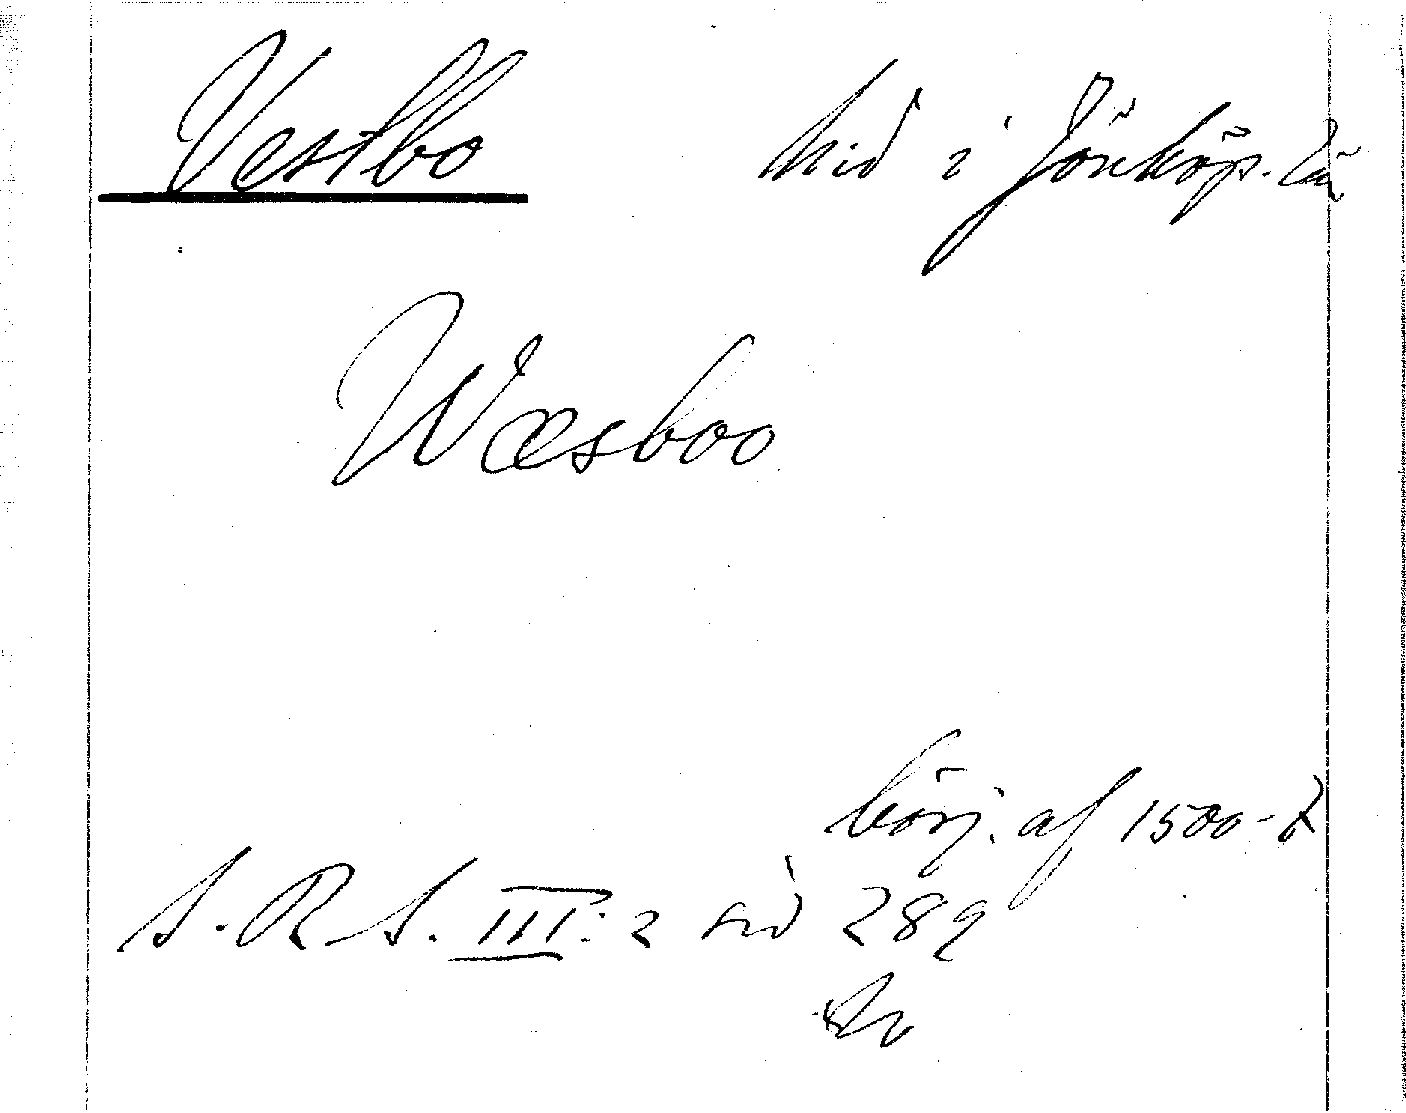 Vestbo hrd i Jönköp. län
Wæsboo
börj. af 1500-t
S. R. S. III:2 sid 289